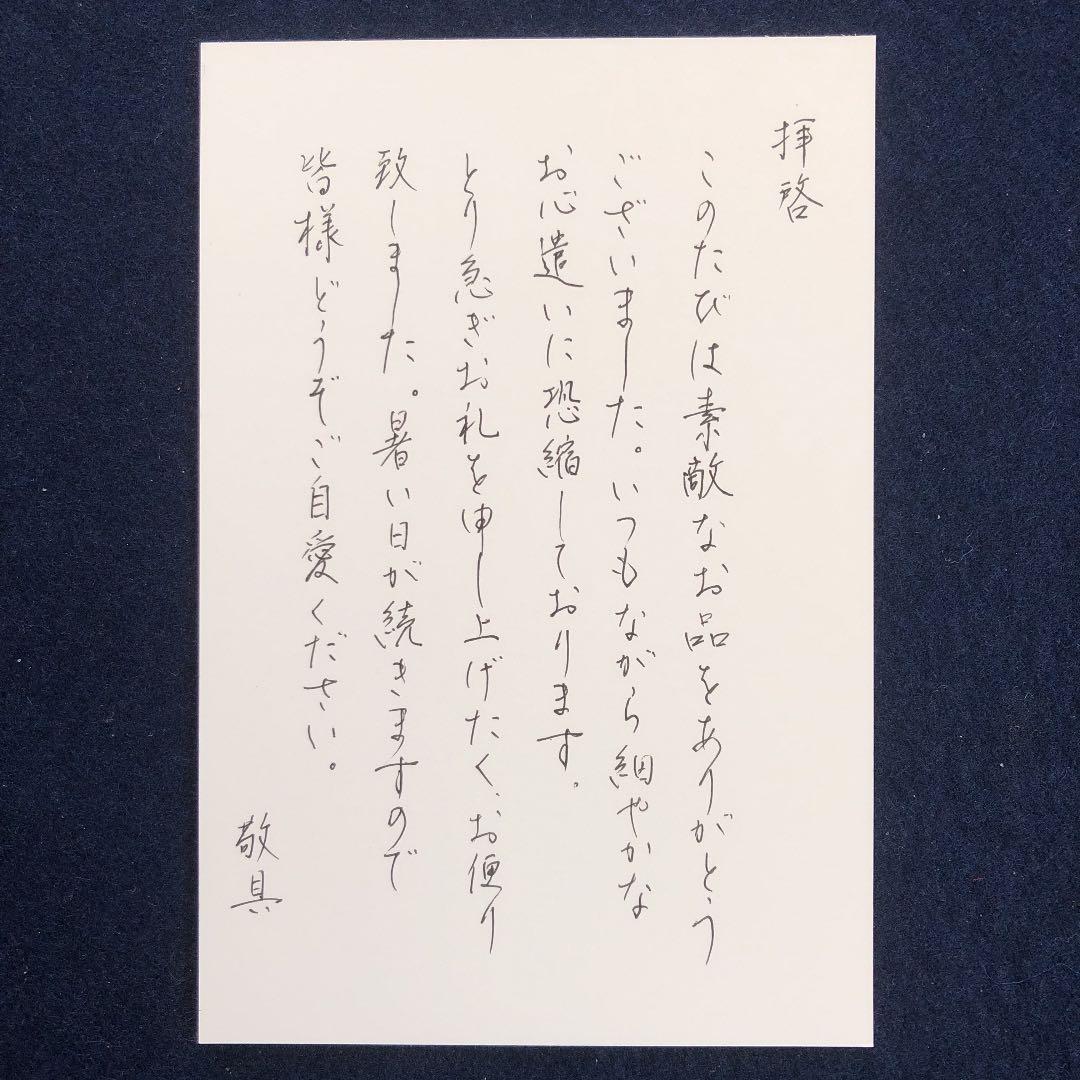 拝啓
このたびは素敵なお品をありがとう
ございました。いつもながら細やかな
お心遣いに恐縮しております。
とり急ぎお礼を申し上げたく、お便り
致しました。暑い日が続きますので
皆様どうぞご自愛ください。
敬具